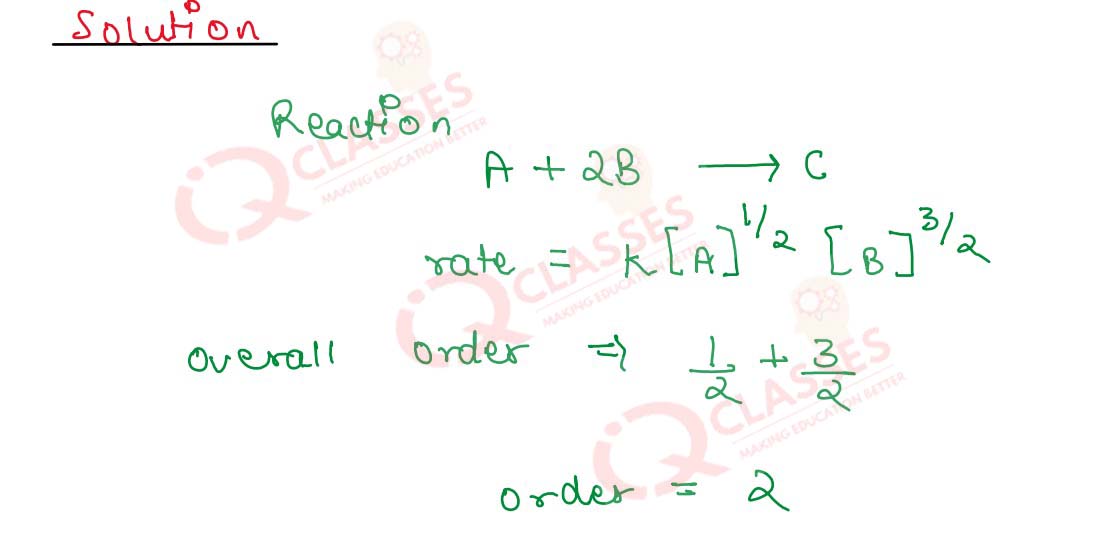 Solution
Reaction
A + 2B ⟶ C
rate = k[A]^1/2 [B]^3/2
overall order ⇒ 1/2 + 3/2
order = 2
IQ CLASSES
MAKING EDUCATION BETTER
IQ CLASSES
MAKING EDUCATION BETTER
IQ CLASSES
MAKING EDUCATION BETTER